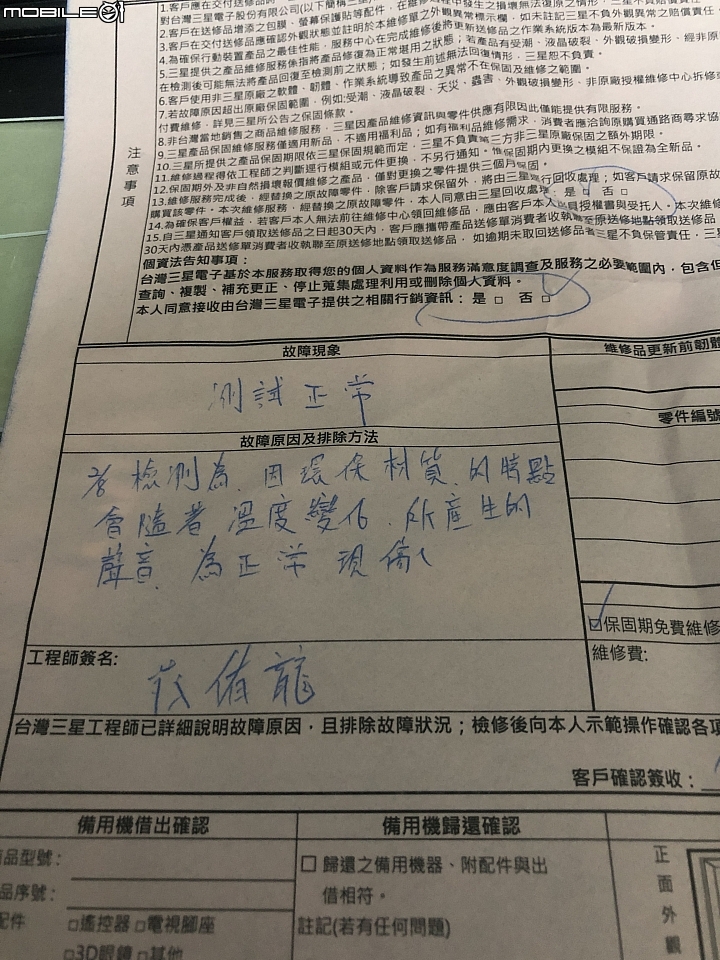 MOBILE01
對台灣三星電子股份有限公司(以下簡稱三星
2.客戶在送修品增添之包膜、螢幕保護貼等配件，在維修
3.客戶在交付送修品應確認外觀狀態並註明於本維修單之外觀異常標示欄，如未註記三星不負外觀異常之賠償責任
4.為確保行動裝置產品之最佳性能，服務中心在完成維修後將更新送修品之作業系統版本為最新版本。
5.三星提供之產品維修服務係指將產品修復為正常堪用之狀態；若產品有受潮、液晶破裂、外觀破損變形、經非原
在檢測後可能無法將產品回復至檢測前之狀態；如發生前述無法回復情形，三星恕不負責。
6.客戶使用非三星原廠之軟體、韌體、作業系統導致產品之異常不在保固及維修之範圍。
7.若故障原因超出原廠保固範圍，例如:受潮、液晶破裂、天災、蟲害、外觀破損變形、非原廠授權維修中心拆修或
付費維修，詳見三星所公告之保固條款。
8.非台灣當地銷售之商品維修服務，三星因產品維修資訊與零件供應有限因此僅能提供有限服務。
9.三星產品保固維修服務僅適用新品，不適用福利品；如有福利品維修需求，消費者應洽詢原購買通路商尋求協
10.三星所提供之產品保固期限依三星保固規範而定，三星不負責第三方非三星原廠保固之額外期限。
11.維修過程得依工程師之判斷逕行模組或元件更換，不另行通知。惟保固期內更換之模組不保證為全新品。
12.保固期外及非自然損壞報價維修之產品，僅對更換之零件提供三個月保固。
13.維修服務完成後，經替換之原故障零件，除客戶請求保留外，將由三星逕行回收處理；如客戶請求保留原故
購買該零件。本次維修服務，經替換之原故障零件，本人同意由三星回收處理：是 □ 否 □
14.為確保客戶權益，若客戶本人無法前往維修中心領回維修品，應由客戶本人送具授權書與受託人。本次維修
15.自三星通知客戶領取送修品之日起30天內，客戶應攜帶產品送修單消費者收執聯至原送修地點領取送修品，
30天內憑產品送修單消費者收執聯至原送修地點領取送修品，如逾期未取回送修品者三星不負保管責任，三星
注意事項
個資法告知事項：
台灣三星電子基於本服務取得您的個人資料作為服務滿意度調查及服務之必要範圍內，包含但
查詢、複製、補充更正、停止蒐集處理利用或刪除個人資料。
本人同意接收由台灣三星電子提供之相關行銷資訊：是 □ 否 □
故障現象
維修品更新前韌體
測試正常
零件編號
故障原因及排除方法
檢測為 因環保材質 的特點
會隨著 溫度變化 所產生的
聲音 為正常現象
☑保固期免費維修
維修費:
工程師簽名:
台灣三星工程師已詳細說明故障原因，且排除故障狀況；檢修後向本人示範操作確認各項
客戶確認簽收：
備用機借出確認
備用機歸還確認
品型號：
品序號：
配件 □遙控器 □電視腳座
□3D眼鏡 □其他
□ 歸還之備用機器、附配件與出
借相符。
註記(若有任何問題)
正面外觀